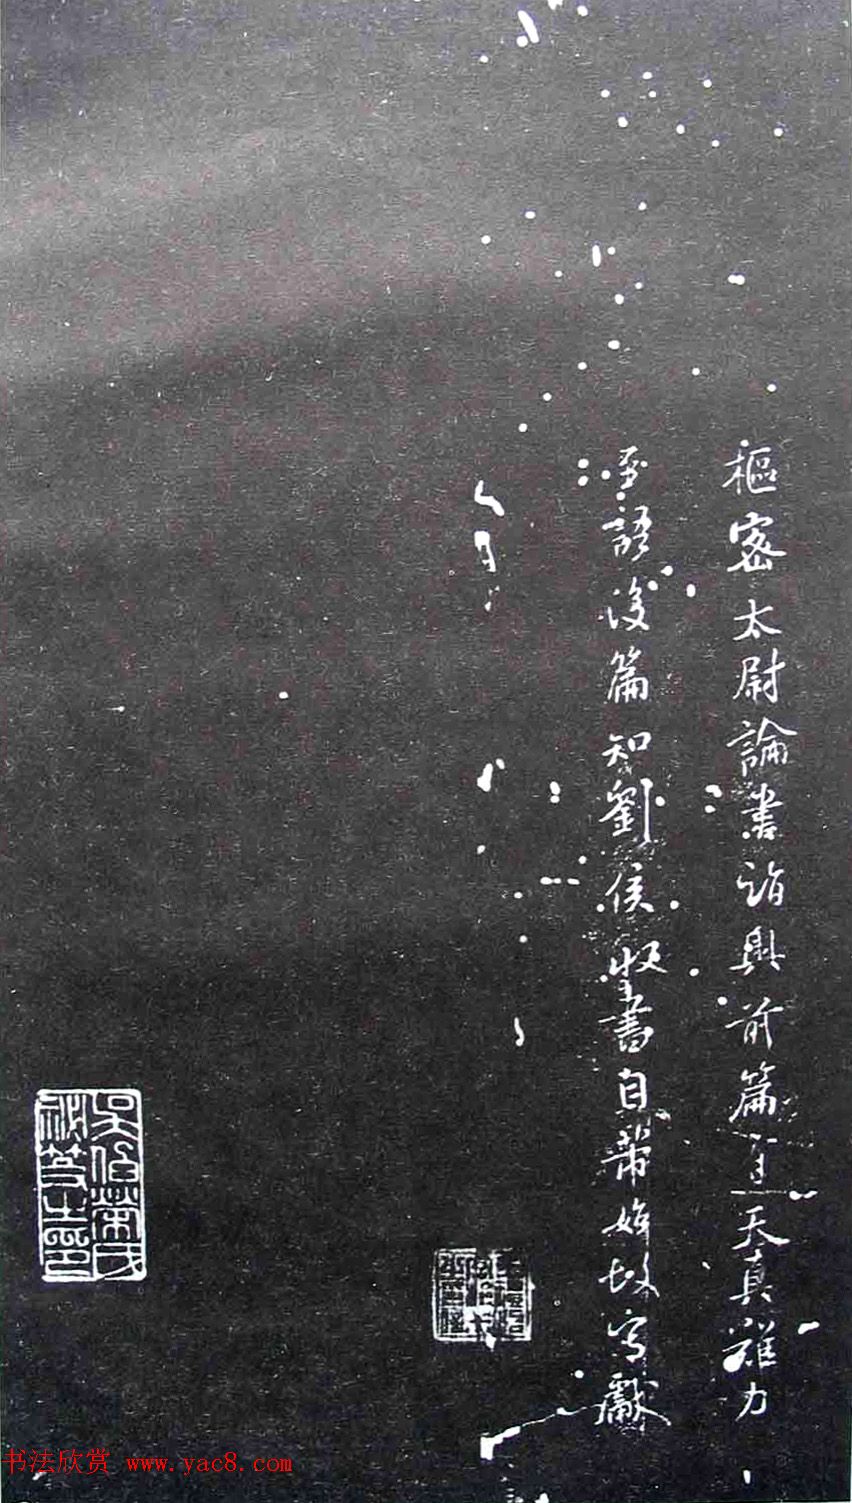 樞密太尉論書詣與前篇直天真難力
至語後篇知劉侯收書自帶始故寫獻
吳伯榮氏
秘笈之印
书法欣赏 www.yac8.com